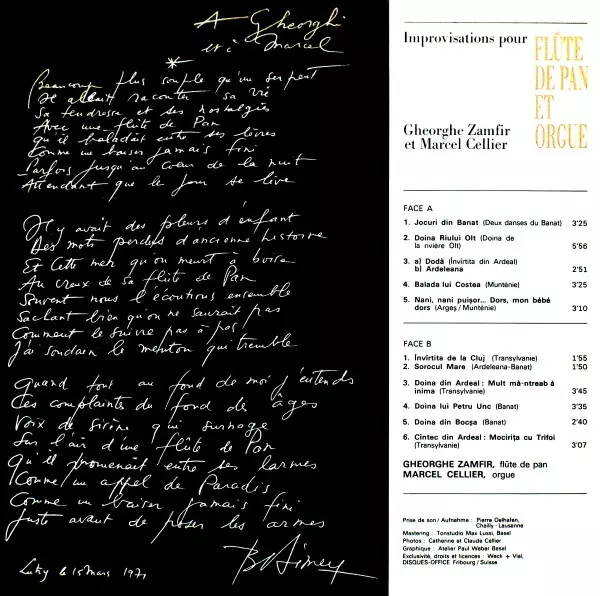 A Gheorghi
et à Marcel
*
Beaucoup plus souple qu'un serpent
Il allait raconter sa vie
Sa tendresse et ses nostalgies
Avec une flûte de Pan
Qu'il baladait entre ses lèvres
Comme un baiser jamais fini
Parfois jusqu'au cœur de la nuit
Attendant que le jour se lève
Il y avait des pleurs d'enfant
Des mots perdus d'ancienne histoire
Et cette mer qu'on meurt à boire
Au creux de sa flûte de Pan
Souvent nous l'écoutions ensemble
Sachant bien qu'on ne saurait pas
Comment le suivre pas à pas
J'ai soudain le menton qui tremble
Quand tout au fond de moi j'entends
Ces complaintes du fond de âges
Voix de sirène qui surnage
Sur l'air d'une flûte de Pan
Qu'il promenait entre ses larmes
Comme un appel de Paradis
Comme un baiser jamais fini
Juste avant de poser les armes
Lutry le 15 mars 1971
Improvisations pour
FLÛTE
DE PAN
ET
ORGUE
Gheorghe Zamfir
et Marcel Cellier
FACE A
1. Jocuri din Banat (Deux danses du Banat) 3'25
2. Doina Riului Olt (Doina de
la rivière Olt) 5'56
3. a) Dodà (Învirtita din Ardeal)
b) Ardeleana 2'51
4. Balada lui Costea (Munténie) 3'25
5. Nani, nani puişor... Dors, mon bébé
dors (Argeş / Munténie) 3'10
FACE B
1. Învirtita de la Cluj (Transylvanie) 1'55
2. Sorocul Mare (Ardeleana-Banat) 1'50
3. Doina din Ardeal : Mult mà-ntreab à
inima (Transylvanie) 3'45
4. Doina lui Petru Unc (Banat) 3'35
5. Doina din Bocşa (Banat) 2'40
6. Cintec din Ardeal : Mociriţa cu Trifoi
(Transylvanie) 3'07
GHEORGHE ZAMFIR, flûte de pan
MARCEL CELLIER, orgue
Prise de son / Aufnahme : Pierre Oelhafen,
Chailly - Lausanne
Mastering : Tonstudio Max Lussi, Basel
Photos : Catherine et Claude Cellier
Graphique : Atelier Paul Weber Basel
Exclusivité, droits et licences : Weck + Viel,
DISQUES-OFFICE Fribourg / Suisse